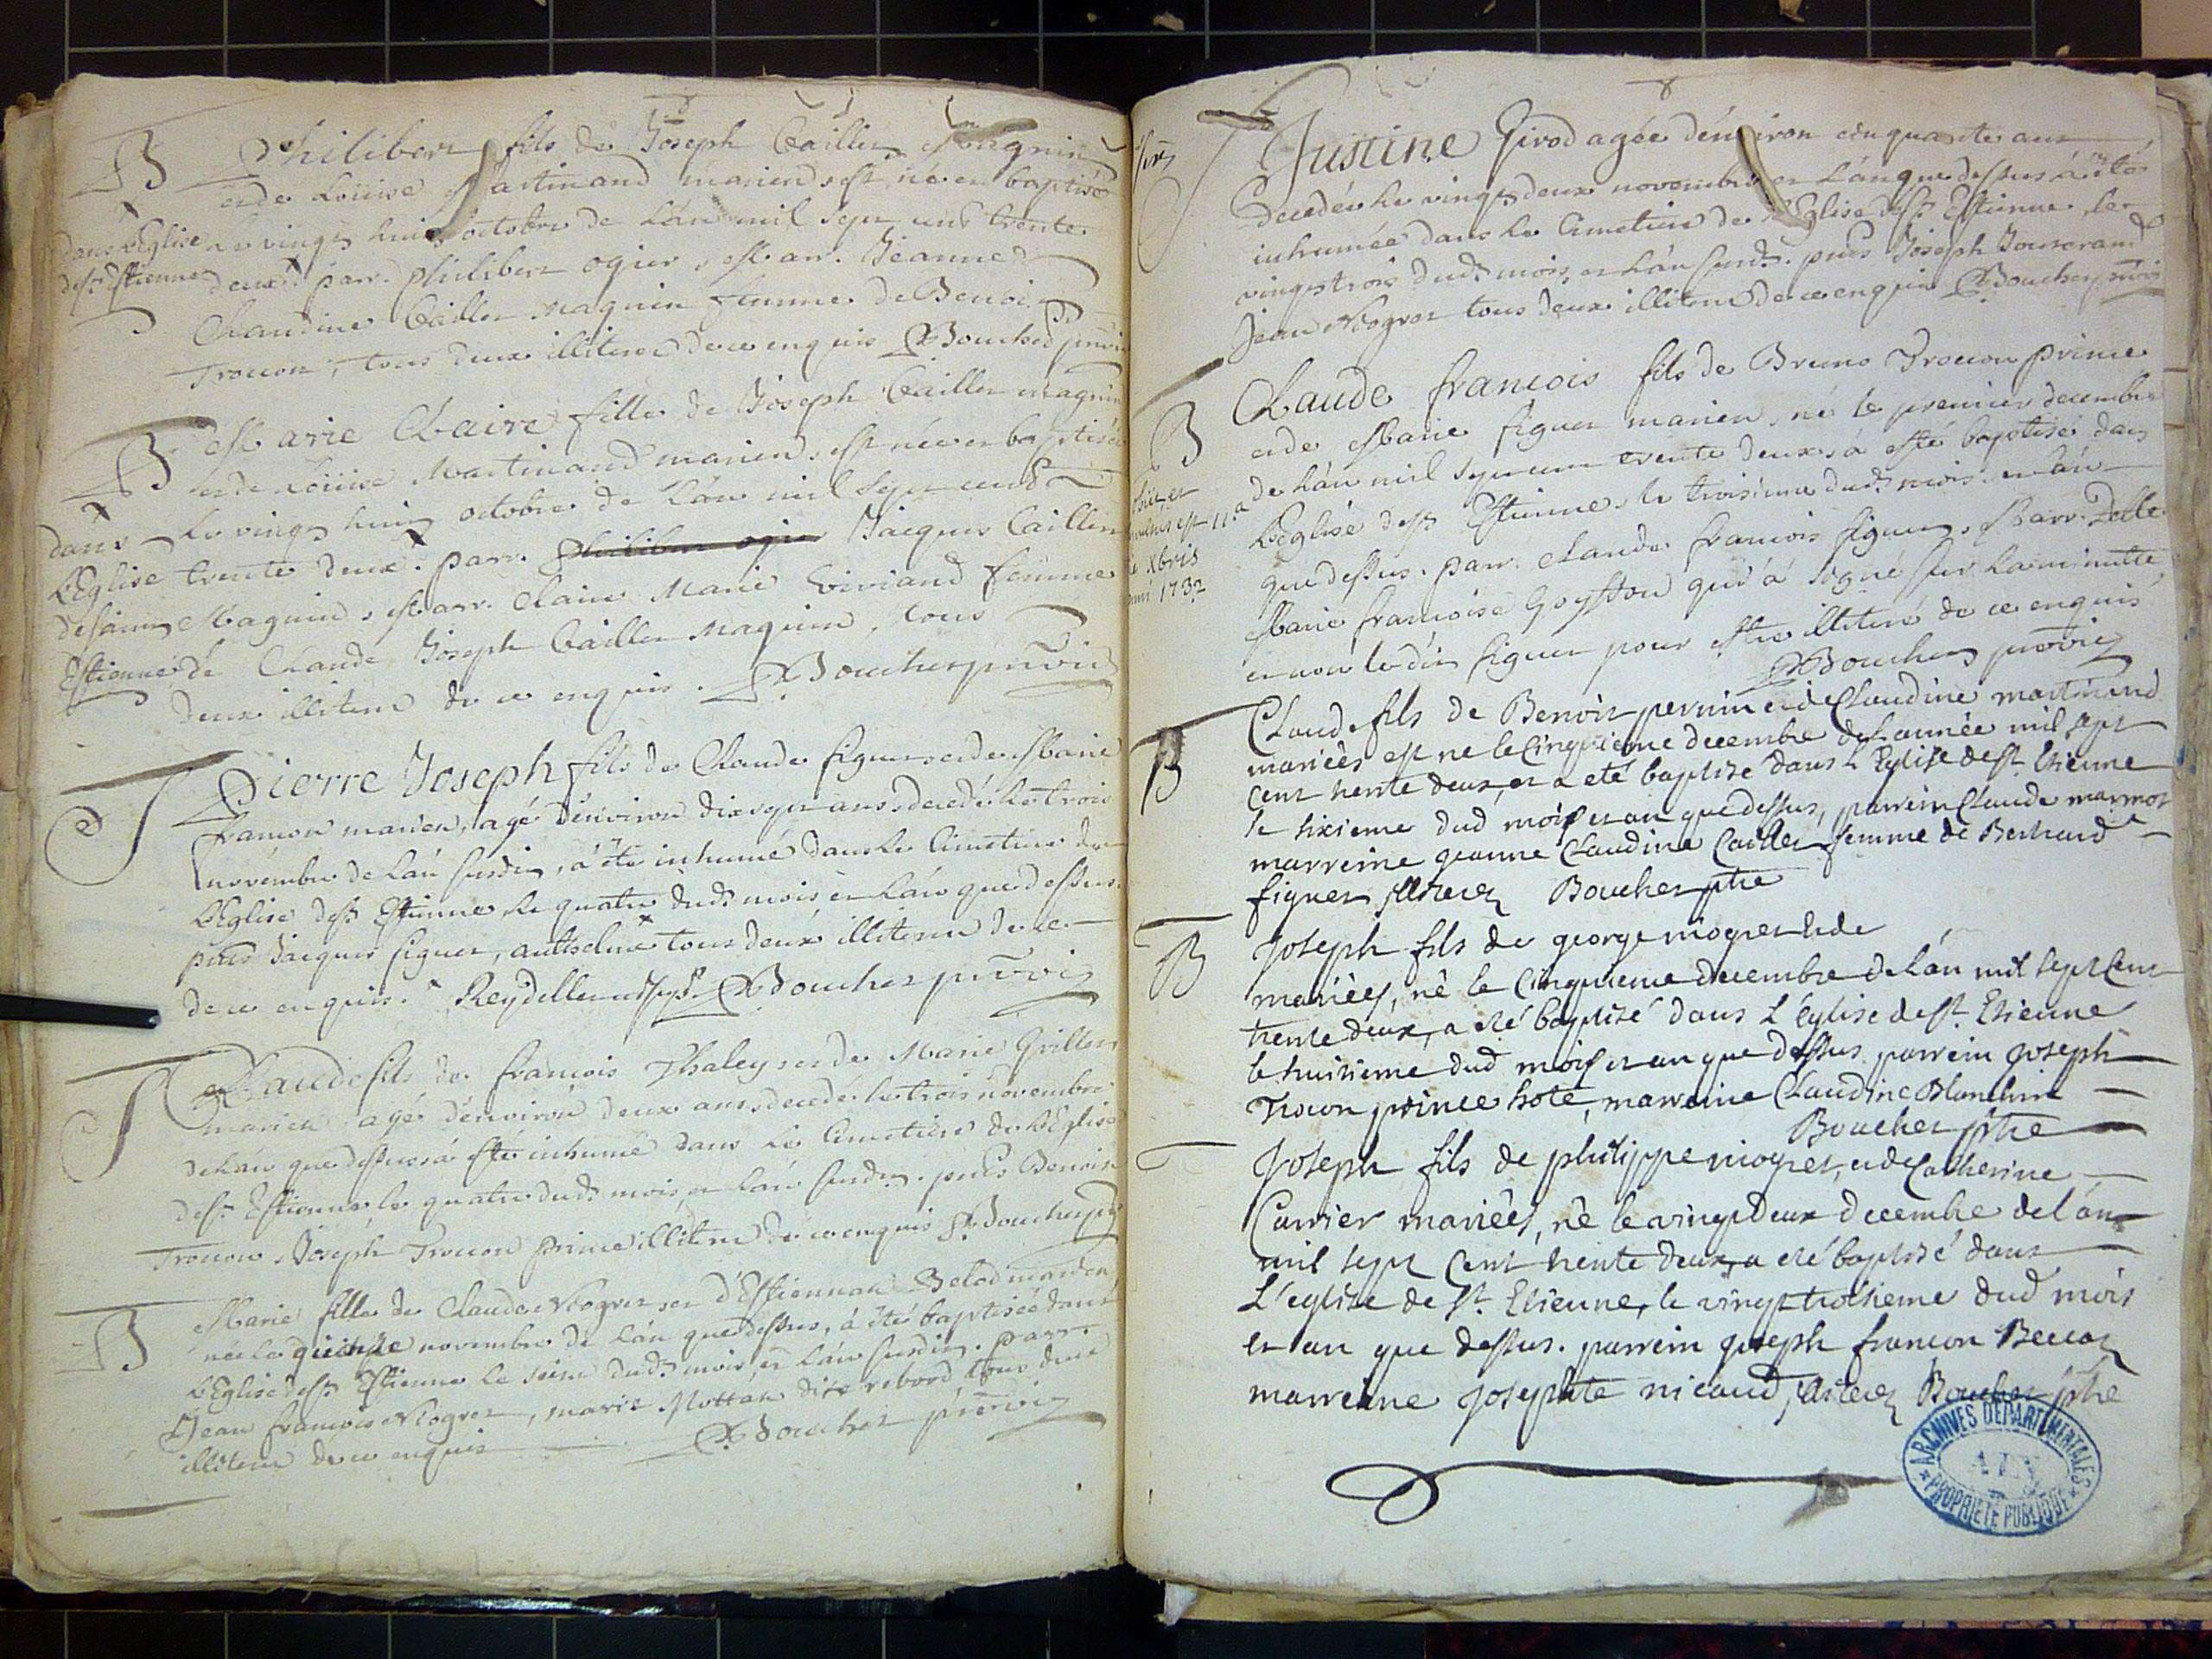 B Philibert fils de Joseph Cailler Magnin
et de Loüise Martinand mariend est né et baptisé
dans l'Eglise le vingt huit octobre de l'an mil sept cent trente
de st Estienne deux. parr. Philibert ogier, Marr. Jeanne
Claudine Cailler Magnin femme de Benoit
Troccon, tous deux illiteres de ce enquis Boucher
B Marie Claire fille de Joseph Cailler magnin
et de Loüise Martinand mariend, est née et baptisée
dans le vingt huit octobre de L'an mil sept cent
L'Eglise trente deux. parr. Philibert ogier Jacques Cailler
de saint Magnin, Marr. Claire Marie Viviand femme
Estienne de Claude Joseph Cailler Magnin, tous
deux illiteres de ce enquis. Boucher
Pierre Joseph fils de Claude figuet et de Marie
francon mariend, agé d'environ dix sept ans, decedé le trois
novembre de L'an susdit, à été inhumé dans le Cimetiere de
L'Eglise de st Estienne, le quatre dudt mois et L'an que dessus.
pnts Jacques figuet, anthelme tous deux illiteres de ce
de ce enquis. Reydellet Boucher
Claude fils de francois Thaley et de Marie Grillet
mariend agé d'environ deux ans, decedé le trois novembre
de L'an que dessus à esté inhumé dans le Cimetiere de L'Eglise
de st Estienne le quatre dudt mois, et L'an susdt. pnts Benoit
Troccon, Joseph Troccon prince illiteres de ce enquis Boucher
B Marie fille de Claude Mogret et d'Estiennaz Belod mariend
née le quinze novembre de L'an que dessus, à été baptisée dans
L'Eglise de st Estienne le seize dudt mois, et L'an susdit. parr.
Jean francois Mogret, marr. Mottan dite rebord tous deux
illiteres de ce enquis Boucher
Justine Girod agée d'environ cinquante ans
decedée le vingt deux novembre et L'an que dessus à été
inhumée dans le Cimetiere de L'Eglise de st Estienne, le
vingt trois dudt mois, et L'an susdt. pnts Joseph Jouvrand
Jean Mogret tous deux illiteres de ce enquis Boucher
B Claude francois fils de Bruno Troccon prince
et de Marie figuet mariend, né le premier decembre
de L'an mil sept cent trente deux, à esté baptisé dans
L'Eglise de st Estienne, le troisieme dudt mois, et L'an
que dessus. parr. Claude francois figuet, Marr. Delle
Marie francoise Goyffon qui à signé sur la minutte
et non ledit figuet pour estre illiteré de ce enquis
Boucher
Xbris
1732
B Claude fils de Benoit pernin et de Claudine martinand
mariées est ne le Cinquieme decembre de L'année mil sept
Cent trente deux, et a eté baptisé dans L'Eglise de st. Etienne
le sixieme dud mois et an que dessus, parrein Claude marmot
marreine jeanne Claudine Cailler femme de Bernard
figuet Boucher ptre
B Joseph fils de george mogret et de
mariéés, né le Cinquieme decembre de L'an mil sept Cent
trente deux, a eté baptisé dans L'Eglise de st. Etienne
le huitieme dud mois et an que dessus parrein joseph
Trocon prince hote, marreine Claudine Blanchin
Boucher ptre
Joseph fils de philippe mogret, et de Catherine
Carrier mariéés, né le vingt Deux decembre de L'an
mil sept Cent trente Deux, a eté baptisé dans
L'eglise de st. Etienne, le vingt troisieme dud mois
et an que dessus. parrein joseph francon Beccaz
marreine Josephte nicaud, Boucher ptre
ARCHIVES DÉPARTEMENTALES
PROPRIÉTÉ PUBLIQUE